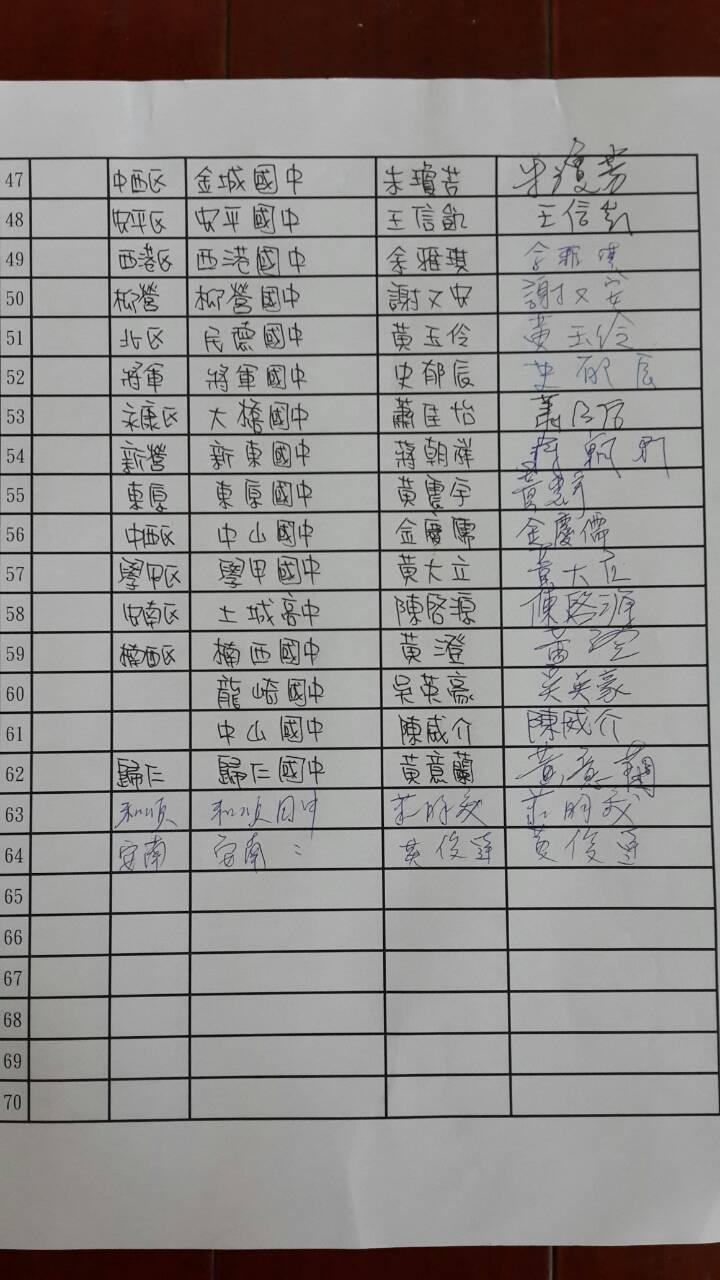 47 中西区 金城國中 朱瓊芳 朱瓊芳
48 安平区 安平國中 王信凱 王信凱
49 西港区 西港國中 余雅琪 余雅琪
50 柳營 柳營國中 謝文安 謝文安
51 北区 民德國中 黃玉伶 黃玉伶
52 將軍 將軍國中 史郁辰 史郁辰
53 永康区 大橋國中 蕭佳怡
54 新營 新東國中 蔣朝祥
55 東原 東原國中 黃震宇
56 中西区 中山國中 金慶儒 金慶儒
57 學甲区 學甲國中 黃大立 黃大立
58 安南区 土城高中 陳啓源 陳啓源
59 楠西区 楠西國中 黃澄 黃澄
60 龍崎國中 吳英豪 吴英豪
61 中山國中 陳威介 陳威介
62 歸仁 歸仁國中 黃意蘭 黃意蘭
63 和順 和順国中 莊明
64 安南 安南 〃 黃俊運 黃俊運
65
66
67
68
69
70